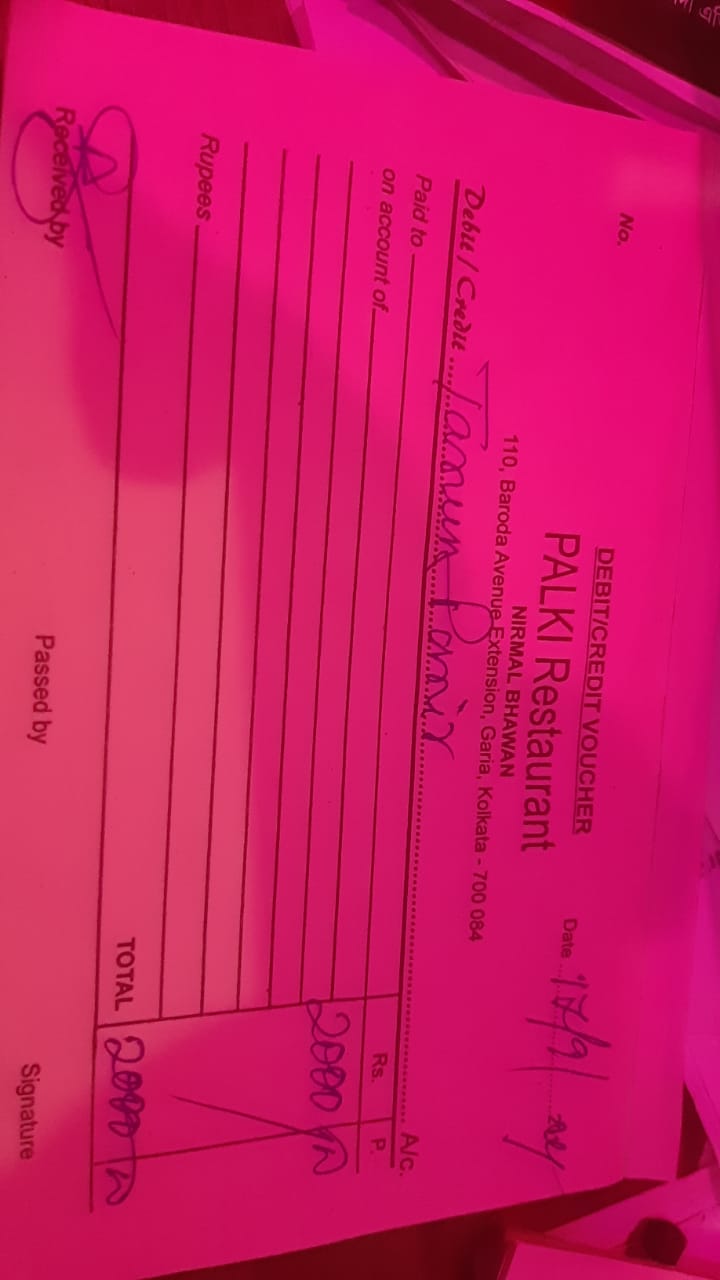 No.
DEBIT/CREDIT VOUCHER
PALKI Restaurant
NIRMAL BHAWAN
110, Baroda Avenue Extension, Garia, Kolkata - 700 084
Date 17/9/
Debit / Credit A/c.
Paid to
on account of Rs. P.
2000
Rupees
TOTAL 2000
Received by Passed by Signature